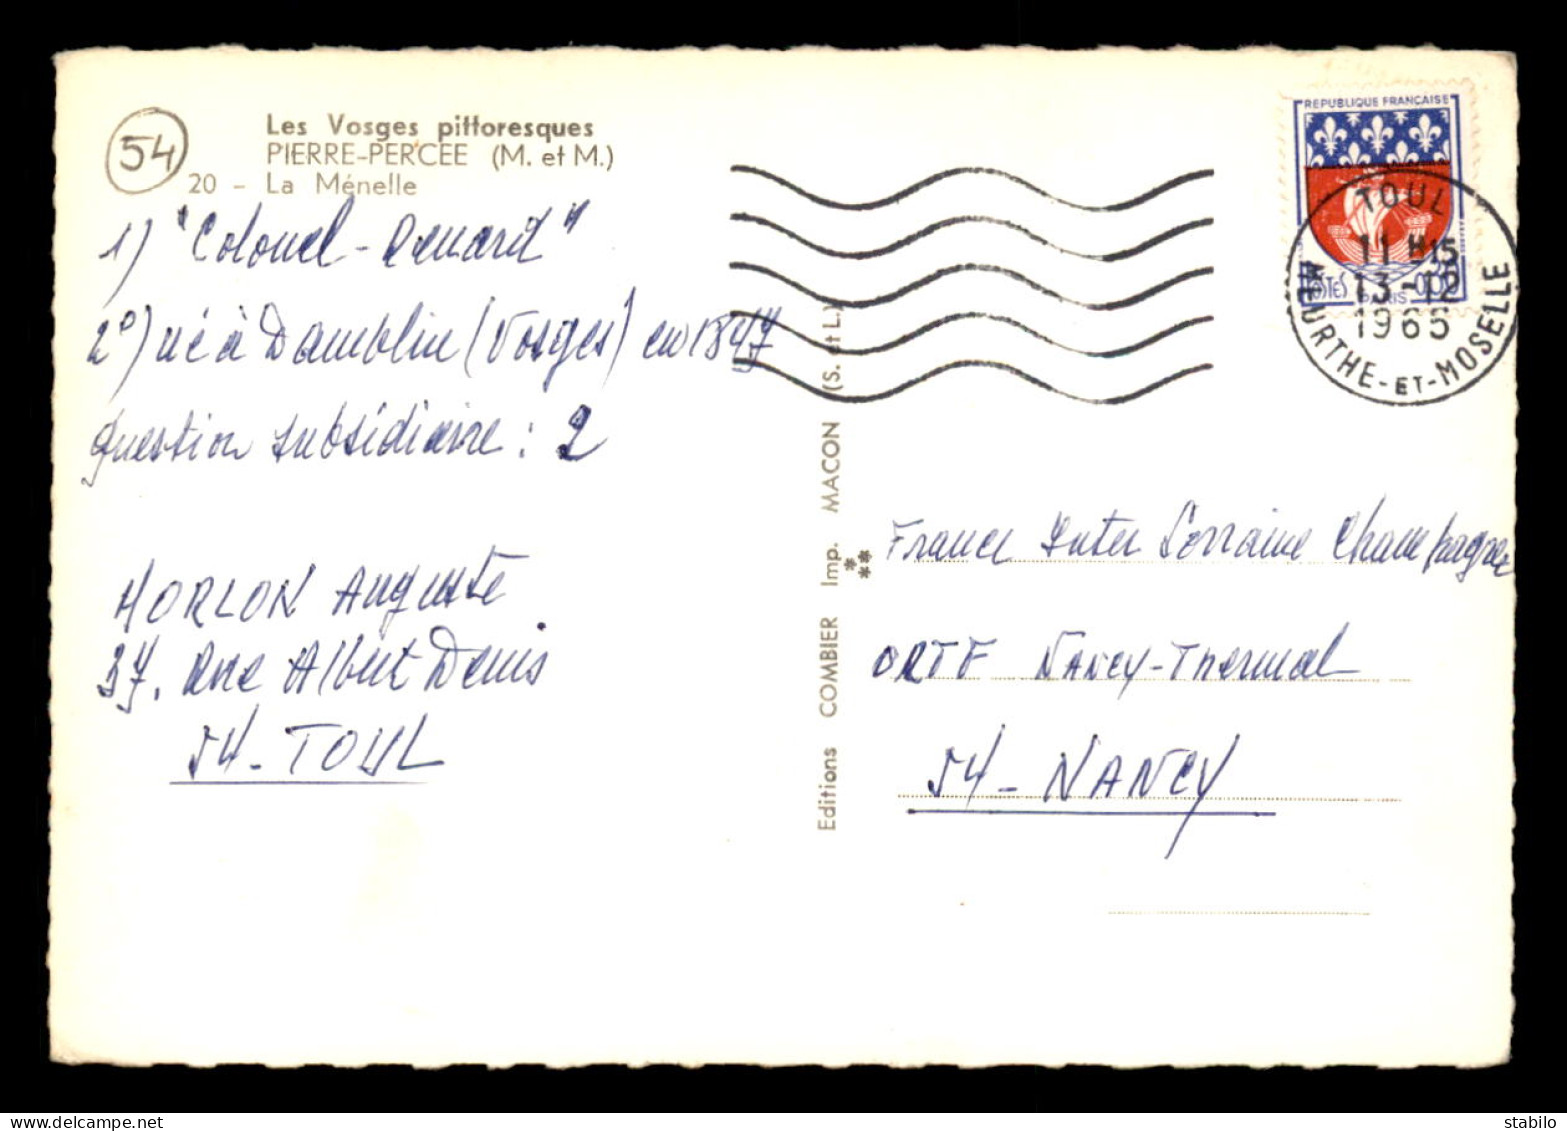 54
Les Vosges pittoresques
PIERRE-PERCÉE (M. et M.)
20 - La Ménelle
1) "Colonel-Renard"
2º) né à Damblin (Vosges) en 1847
question subsidiaire : 2
HORLON Auguste
37, Rue Albert Denis
54-TOUL
Editions COMBIER Imp. MACON (S. et L.)
REPUBLIQUE FRANÇAISE
POSTES PARIS 0,30
TOUL
11 H 15
13-12
1965
MEURTHE-ET-MOSELLE
France Inter Lorraine Champagne
ORTF NANCY-Thermal
54-NANCY
stabilo